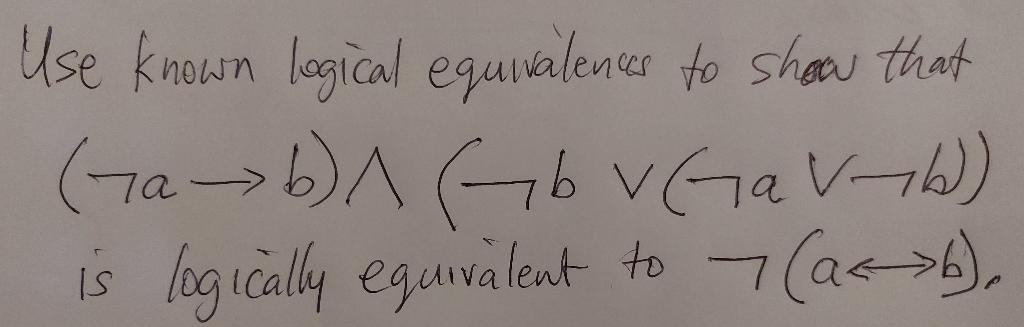 Use known logical equivalences to show that
(¬a → b) ∧ (¬b ∨ (¬a ∨ ¬b))
is logically equivalent to ¬(a ↔ b).